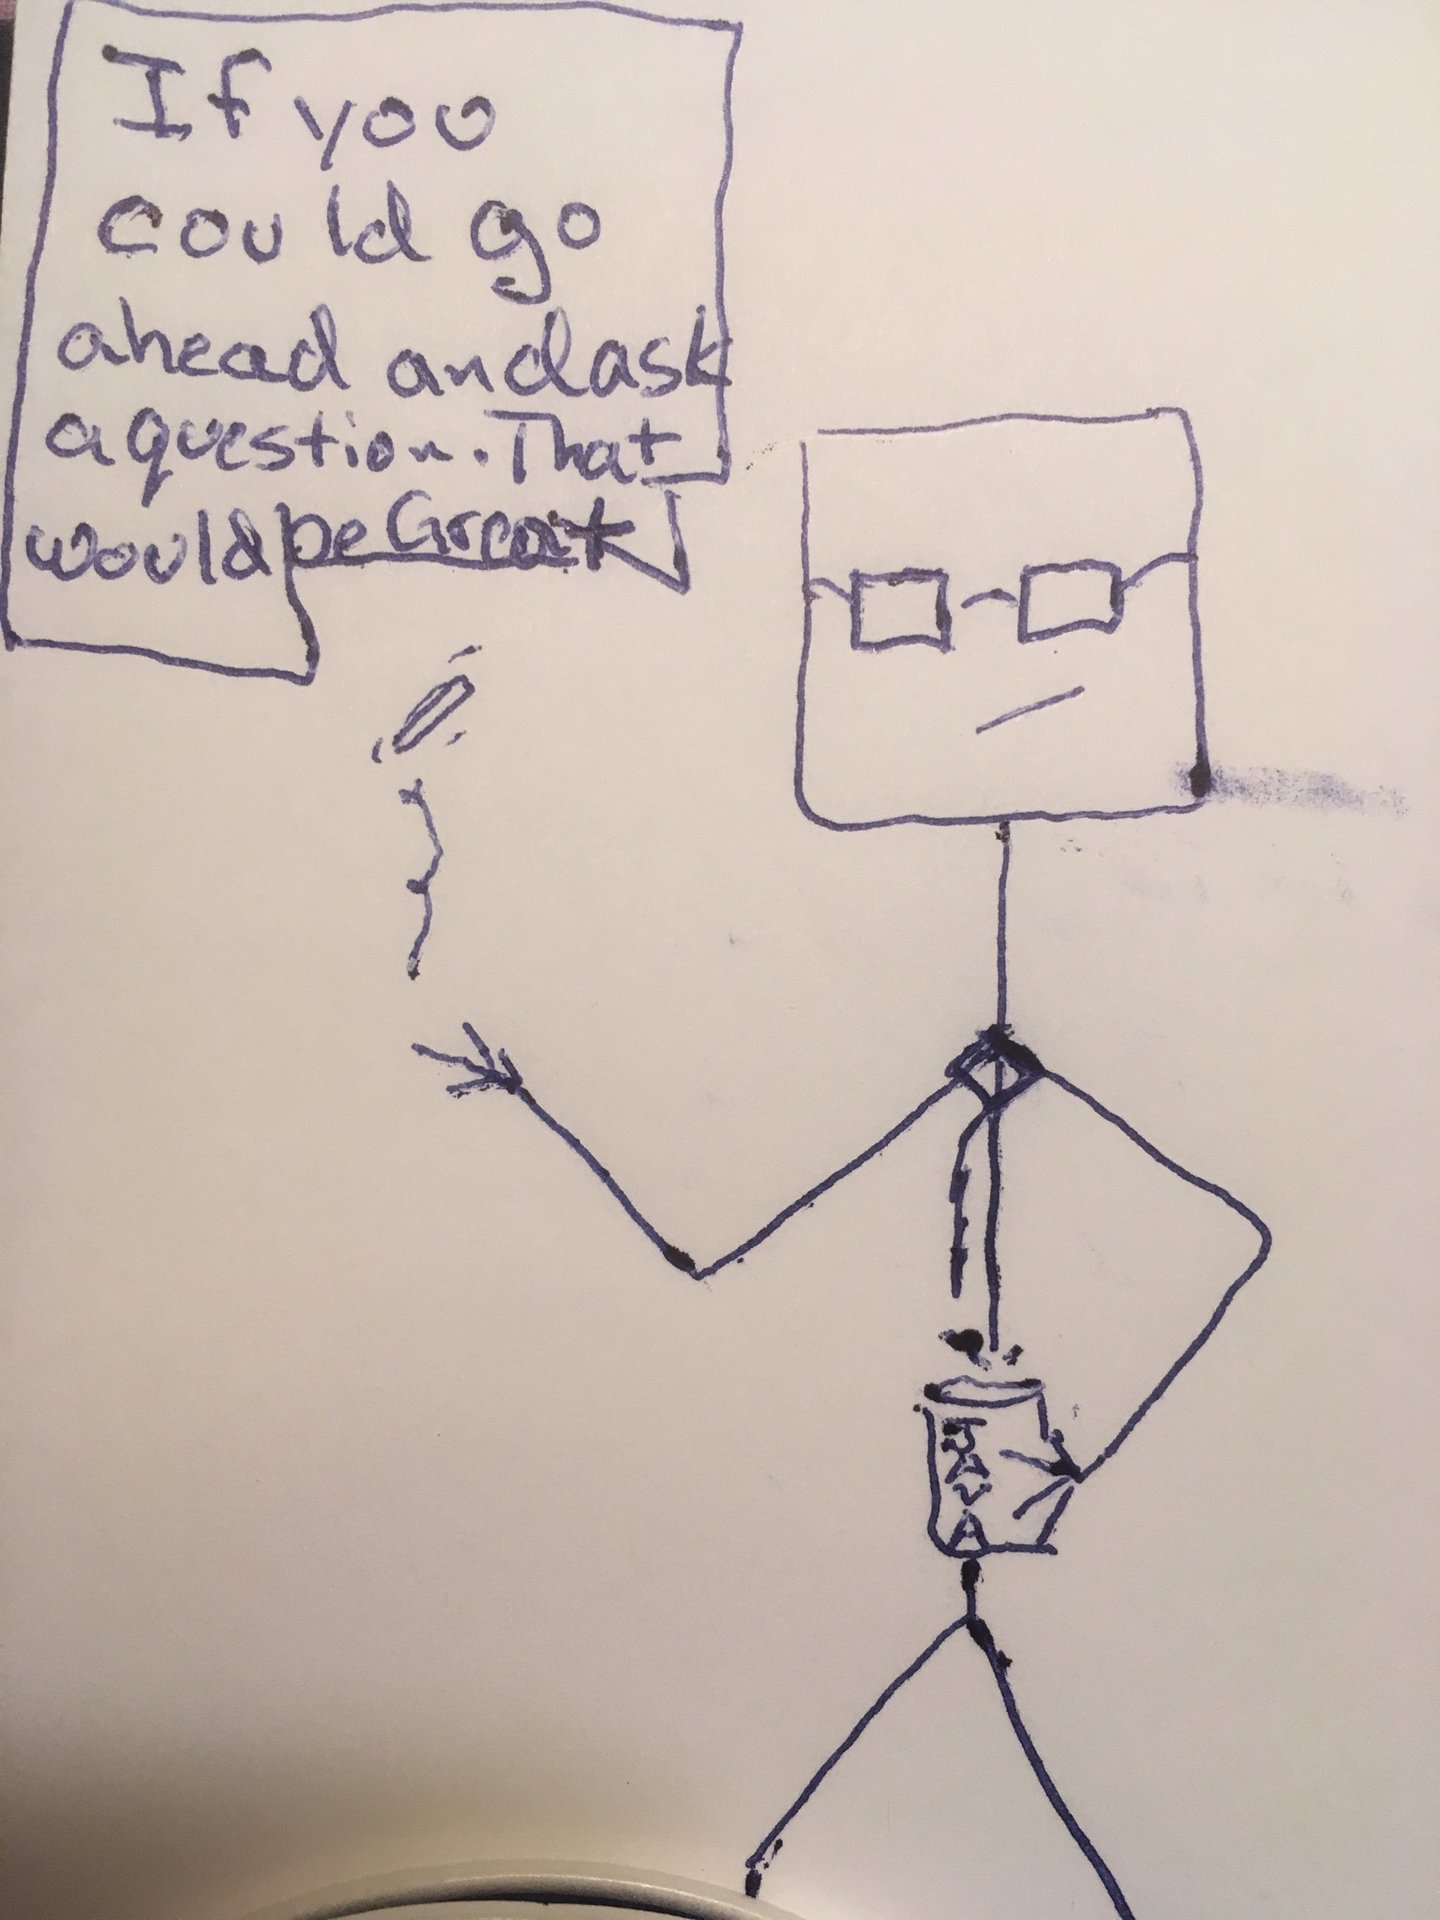 If you
could go
ahead and ask
a question. That
would be Great
JAVA